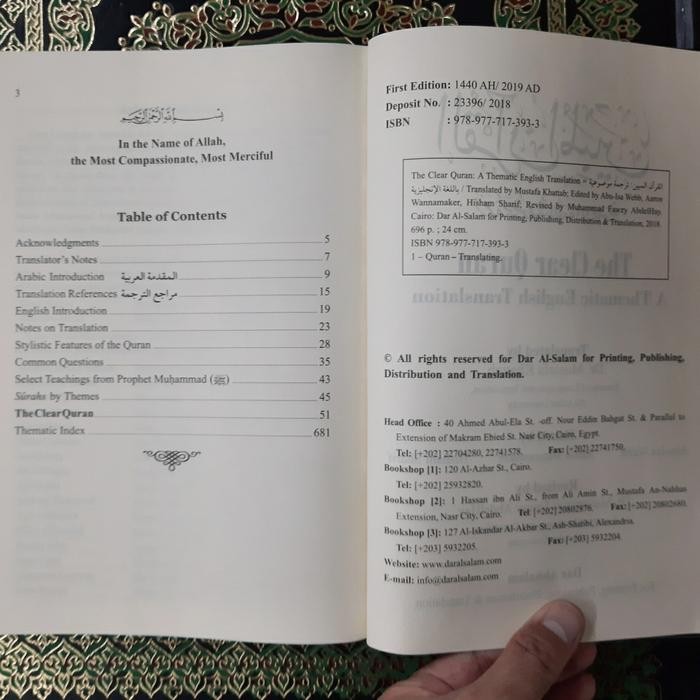 3
بسم الله الرحمن الرحيم
In the Name of Allah,
the Most Compassionate, Most Merciful
Table of Contents
Acknowledgments 5
Translator's Notes 7
Arabic Introduction المقدمة العربية 9
Translation References مراجع الترجمة 15
English Introduction 19
Notes on Translation 23
Stylistic Features of the Quran 28
Common Questions 35
Select Teachings from Prophet Muḥammad (ﷺ) 43
Sûrahs by Themes 45
The Clear Quran 51
Thematic Index 681
First Edition: 1440 AH/ 2019 AD
Deposit No. : 23396/ 2018
ISBN : 978-977-717-393-3
The Clear Quran: A Thematic English Translation = القرآن المبين: ترجمة موضوعية
باللغة الإنجليزية / Translated by Mustafa Khattab; Edited by Abu-Isa Webb, Aaron
Wannamaker, Hisham Sharif; Revised by Muhammad Fawzy AbdelHay.
Cairo: Dar Al-Salam for Printing, Publishing, Distribution & Translation, 2018.
696 p. ; 24 cm.
ISBN 978-977-717-393-3
1 – Quran – Translating.
© All rights reserved for Dar Al-Salam for Printing, Publishing,
Distribution and Translation.
Head Office : 40 Ahmed Abul-Ela St. -off. Nour Eddin Bahgat St. & Parallel to
Extension of Makram Ebied St. Nasr City, Cairo, Egypt.
Tel: [+202] 22704280, 22741578. Fax: [+202] 22741750.
Bookshop [1]: 120 Al-Azhar St., Cairo.
Tel: [+202] 25932820.
Bookshop [2]: 1 Hassan ibn Ali St., from Ali Amin St., Mustafa An-Nahhas
Extension, Nasr City, Cairo. Tel: [+202] 20802876. Fax: [+202] 20802680.
Bookshop [3]: 127 Al-Iskandar Al-Akbar St., Ash-Shatibi, Alexandria.
Tel: [+203] 5932205. Fax: [+203] 5932204.
Website: www.daralsalam.com
E-mail: info@daralsalam.com